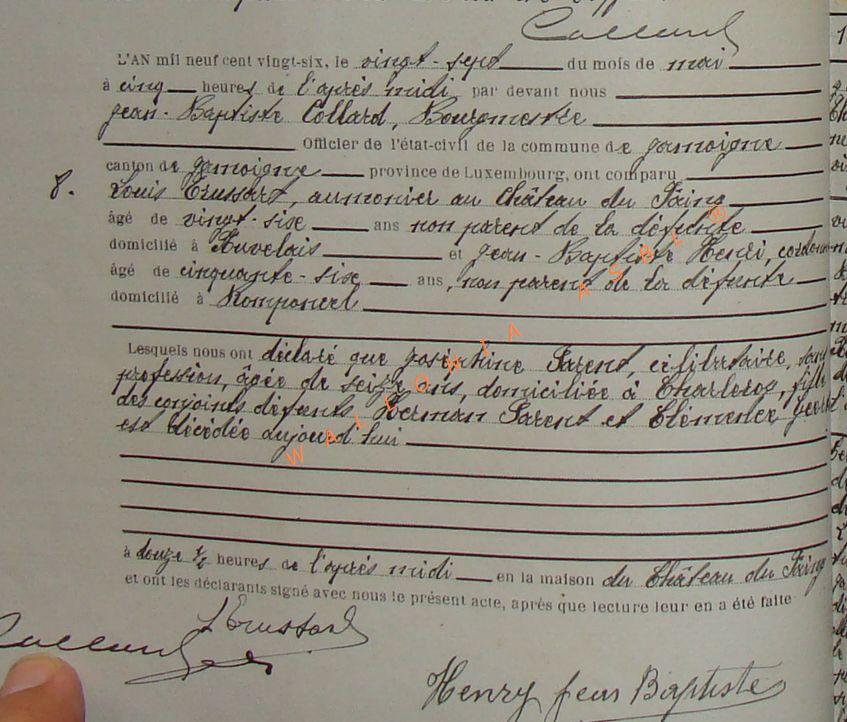 Collard
L'AN mil neuf cent vingt-six, le vingt-sept du mois de mai
à cinq heures de l'après midi par devant nous
Jean-Baptiste Collard, Bourgmestre
Officier de l'état-civil de la commune de Jamoigne
canton de Jamoigne province de Luxembourg, ont comparu
8. Louis Trussart, aumonier au Château du Faing
âgé de vingt-six ans non parent de la défunte
domicilié à Auvelais et Jean-Baptiste Henri, cordon
âgé de cinquante-six ans, non parent de la défunte
domicilié à Romponcel
Lesquels nous ont déclaré que Joséphine Parent, célibataire, sans
profession, âgée de seize ans, domiciliée à Charleroy, fille
des conjoints défunts Herman Parent et Clémence
est décédée aujourd'hui
à douze 1/2 heures de l'après midi en la maison du Château du Faing
et ont les déclarants signé avec nous le présent acte, après que lecture leur en a été faite
L Trussart
Collard
Henry jean Baptiste
WALFONIA ASBL ®